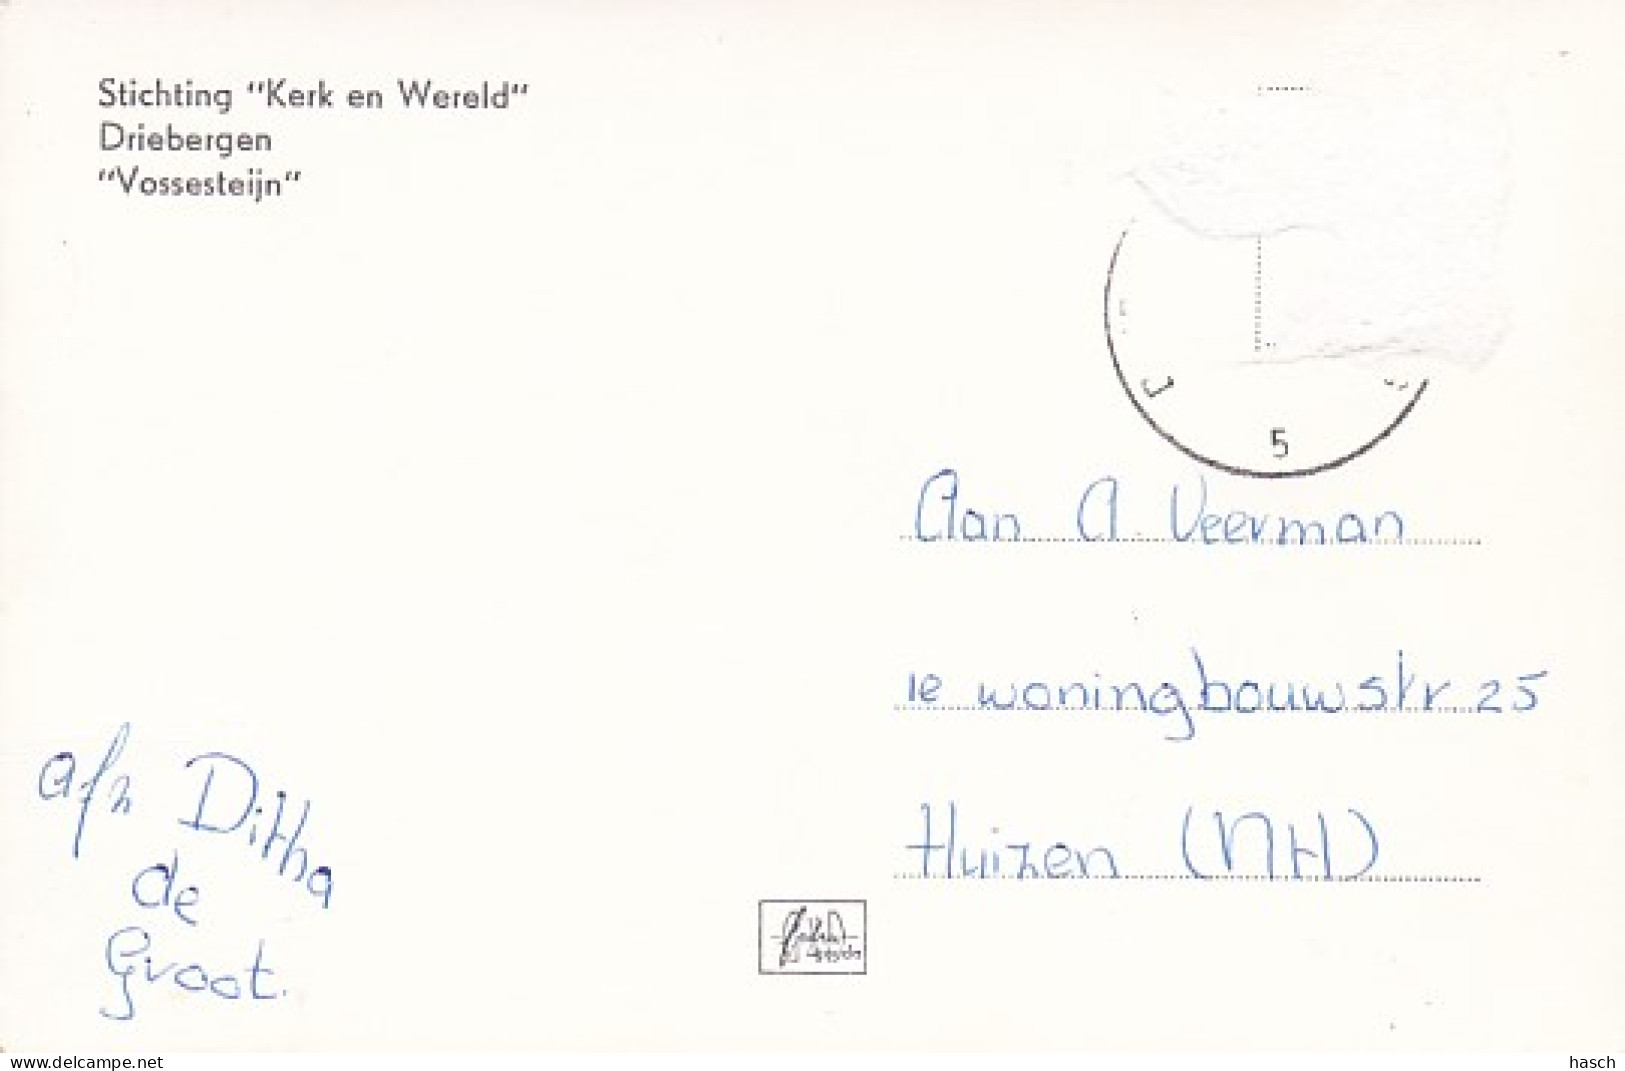 Stichting "Kerk en Wereld"
Driebergen
"Vossesteijn"
5
Aan A. Veerman
1e woningbouwstr 25
Huizen (NH)
afz Ditha
de
Groot.
www.delcampe.net
hasch